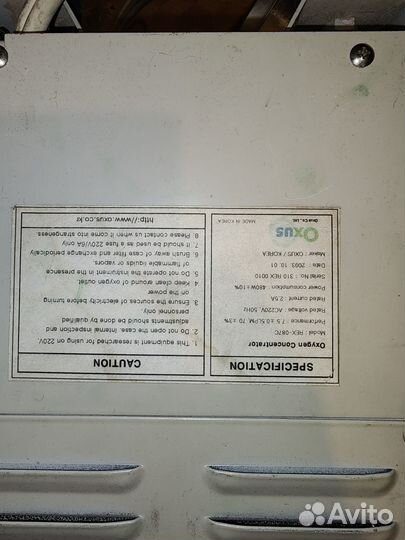 SPECIFICATION
Oxygen Concentrator
Model : REX-087C
Performance : 7.5 ± 0.5LPM, 70 ±3%
Rated voltage : AC220V, 50Hz
Rated current : 2.5A
Power consumption : 480W±10%
Serial No : 310 REX 0010
Date : 2003. 10. 01
Maker : OXUS / KOREA
OXUS
Oxus Co., Ltd.
MADE IN KOREA
CAUTION
1. This equipment is researched for using on 220V.
2. Do not open the case. Internal inspection and
adjustments should be done by qualified
personnel only.
3. Ensure the sources of electricity before turning
on the power
4. Keep clean around of oxygen outlet.
5. Do not operate the instrument in the presence
of flamable liquids or vapors.
6. Brush away of case filter and exchange periodically
7. It should be used as a fuse a 220V/5A only
8. Please contact us when it come into strangeness
http://www.oxus.co.kr
Avito